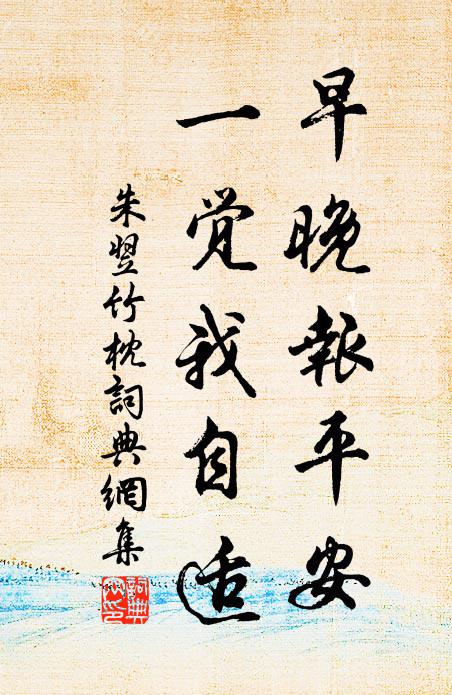 早晚報平安
一觉我自适
朱翌竹枕詞典網集